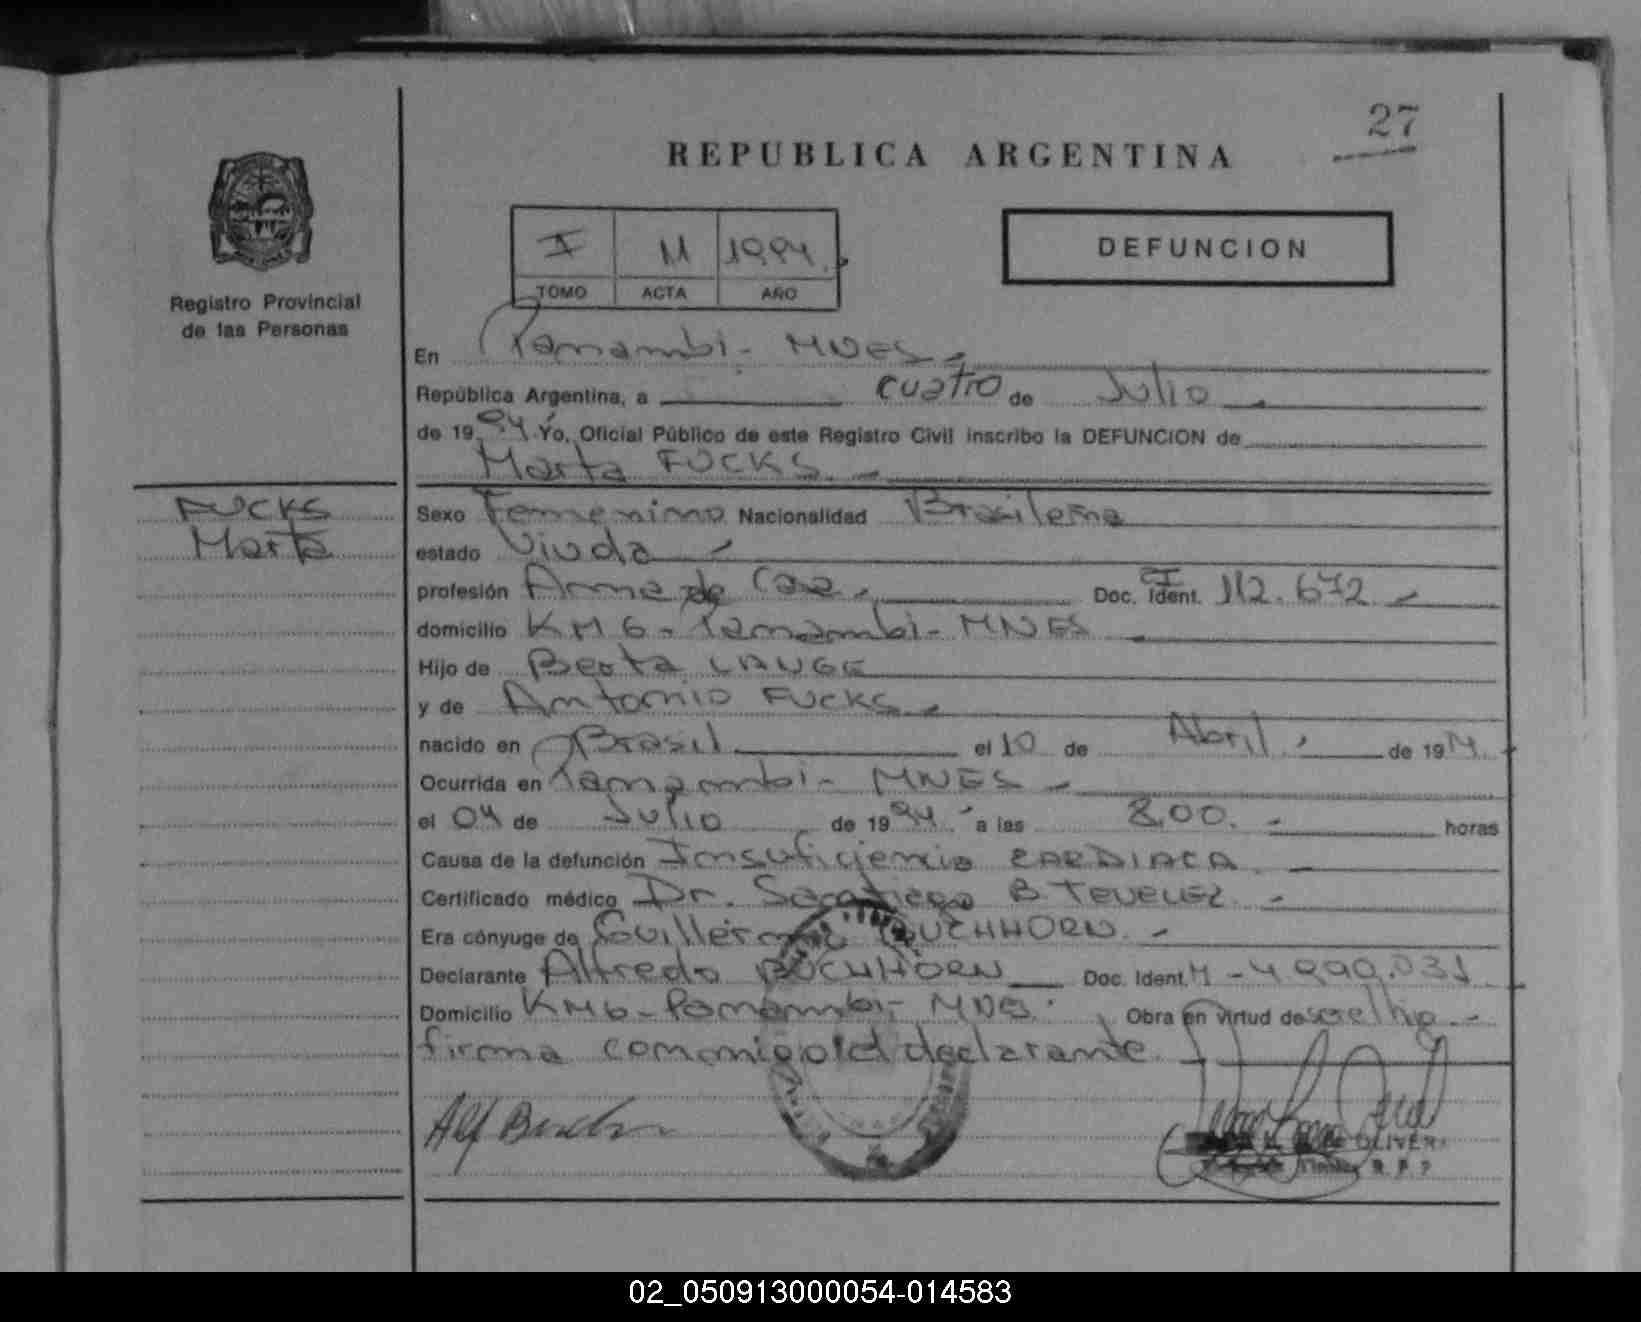 27
REPUBLICA ARGENTINA
Registro Provincial
de las Personas
I 11 1994.
TOMO ACTA AÑO
DEFUNCION
En Panambi - MNES.
República Argentina, a cuatro de Julio
de 19 94 Yo, Oficial Público de este Registro Civil inscribo la DEFUNCION de
Marta FUCKS. -
FUCKS
Marta
Sexo Femenino Nacionalidad Brasileña
estado Viuda -
profesión Ama de Casa. Doc. Ident. CI 112.672 -
domicilio KM 6 - Panambi - MNES
Hijo de Berta LANGE
y de Antonio FUCKS. -
nacido en Brasil el 10 de Abril. de 19 14.
Ocurrida en Panambi - MNES -
el 04 de Julio de 19 94. a las 8,00. - horas
Causa de la defunción Insuficiencia CARDIACA. -
Certificado médico Dr. B. -
Era cónyuge de Guillermo BUCHHORN. -
Declarante Alfredo BUCHHORN Doc. Ident. M - 4.999.031
Domicilio KM6 - Panambi - MNES. Obra en virtud de ser el hijo. -
firma conmigo el declarante.
Alf
OLIVER
R. P. P
02_050913000054-014583